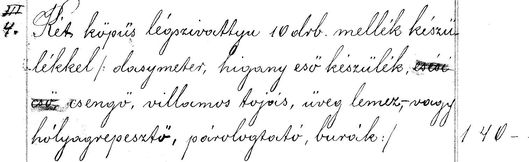 III
4. Két köpüs légszivattyu 10 drb. mellék készü
lékkel /: dasymeter, higany eső készülék,
csengő, villamos tojás, üveg lemez,- vagy
hólyagrepesztő, párologtató, burák :/ 140 -